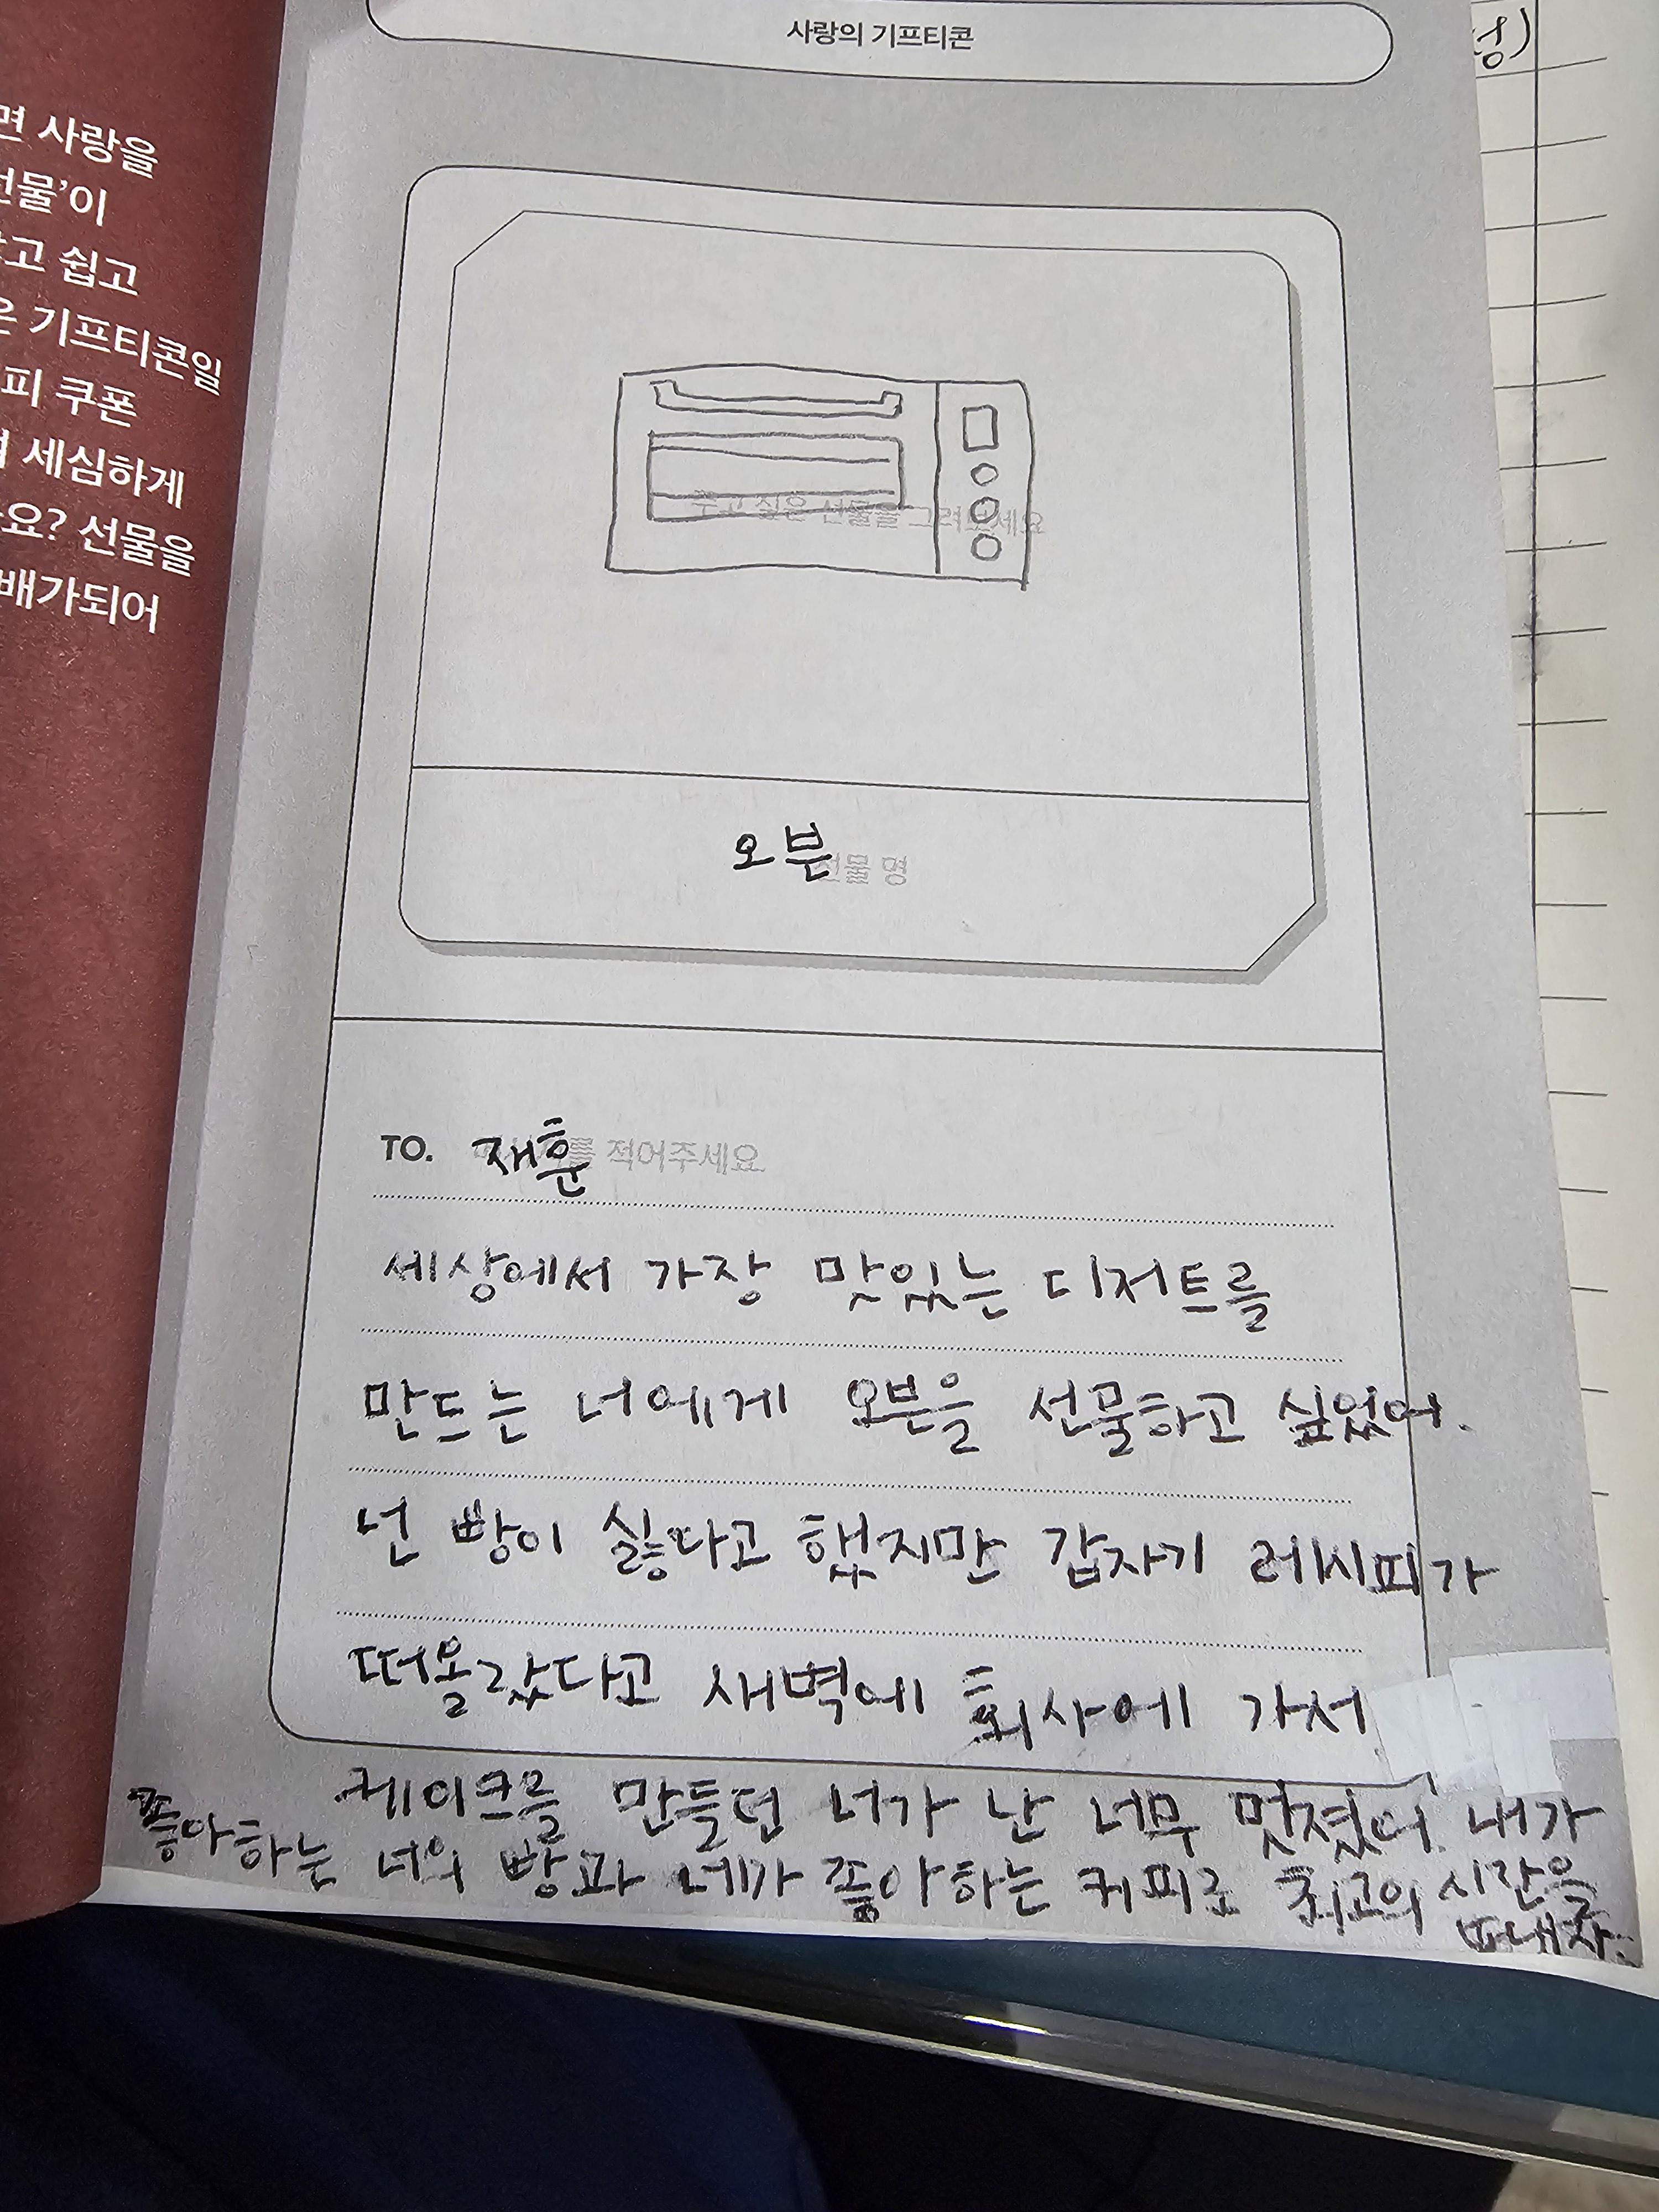 사랑의 기프티콘
성)
면 사랑을
선물’이
고 쉽고
은 기프티콘일
피 쿠폰
세심하게
요? 선물을
배가되어
주고 싶은 선물을 그려보세요
오븐
선물 명
TO. 재훈
를 적어주세요
세상에서 가장 맛있는 디저트를
만드는 너에게 오븐을 선물하고 싶었어.
넌 빵이 싫다고 했지만 갑자기 레시피가
떠올랐다고 새벽에 회사에 가서
케이크를 만들던 너가 난 너무 멋졌어. 내가
좋아하는 너의 빵과 네가 좋아하는 커피로 최고의 시간을
보내자.